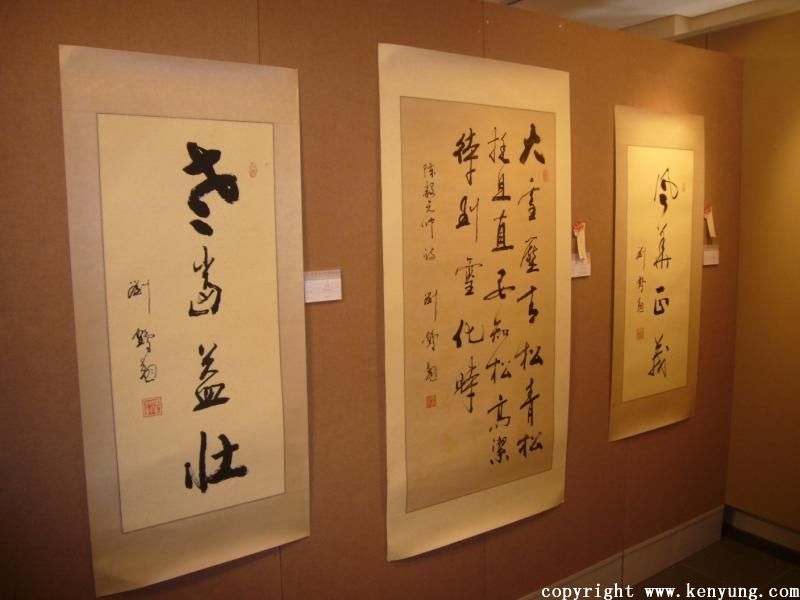 老當益壯
劉
大雪壓青松青松
挺且直要知松高潔
待到雪化時
陳毅元帥詩 劉
風華正
劉
copyright www.kenyung.com